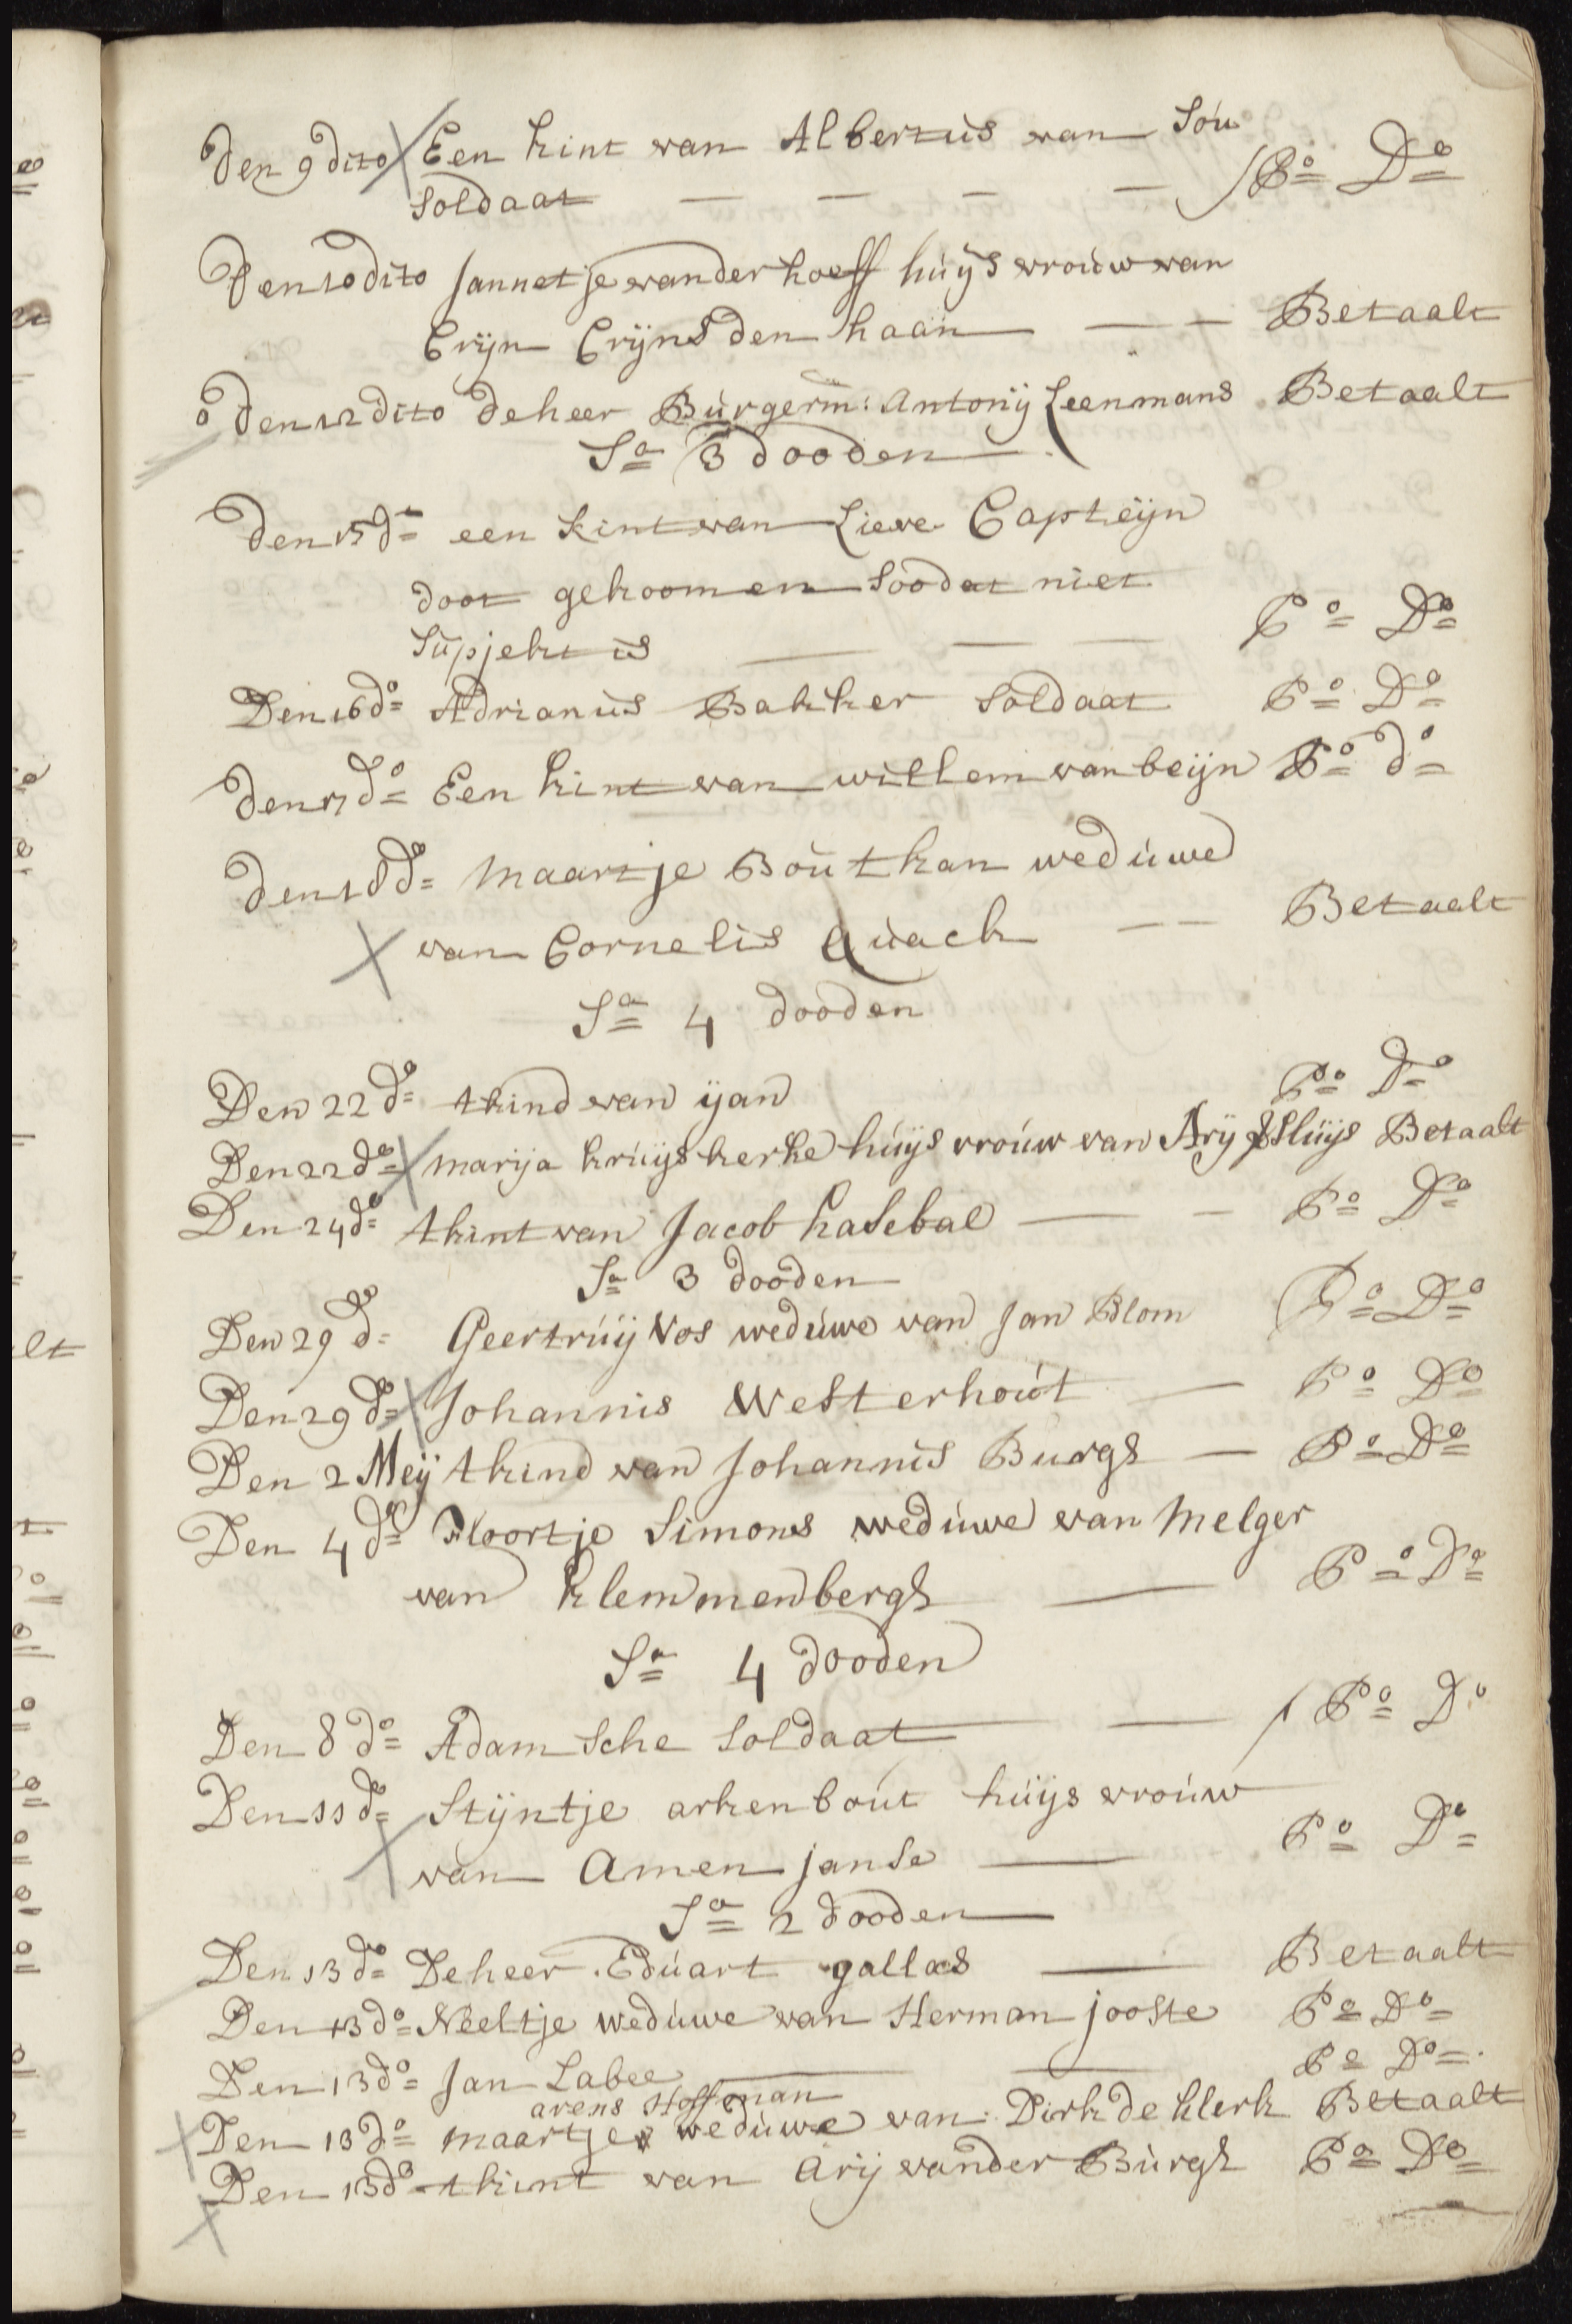 Den 9 dito Een kint van Albertus van Sou
Soldaat — — — — Po Do
Den 10 dito Jannetje vander hoeff huijs vrouw van
Crijn Crijns den haan — — Betaalt
Den 12 dito de heer Burgerm: Antonij Leenmans Betaalt
Sa 3 dooden
Den 15 do een kint van Lieve Capteijn
doot gekoomen Soo dat niet
Supjekt is — — — Po Do
Den 16 do Adrianus Bakker Soldaat Po Do
Den 17 do Een kint van willem van beijn Po do
Den 18 do Maartje Boutkan weduwe
van Cornelis Quack — — Betaalt
Sa 4 dooden
Den 22 do tkind van ijan Po Do
Den 22 do marija kruijskerke huijs vrouw van Arij Sluijs Betaalt
Den 24 do tkint van Jacob kasebal — — Po Do
Sa 3 dooden
Den 29 do Geertruij Vos weduwe van Jan Blom Po Do
Den 29 do Johannis Westerhout — Po Do
Den 2 Meij tkind van Johannis Burgs — Po Do
Den 4 do Floortje Simons weduwe van Melger
van klemmenbergh — Po Do
Sa 4 dooden
Den 8 do Adam Sche Soldaat — Po Do
Den 11 do Stijntje arkenbout huijs vrouw
van Amen janse — Po Do
Sa 2 dooden
Den 13 do De heer Eduart gallas — Betaalt
Den 13 do Neeltje weduwe van Herman jooste Po Do
Den 13 do Jan Labee — — Po Do
arens Hoffman
Den 13 do maartje weduwe van Dirk de klerk Betaalt
Den 13 do tkint van Arij vander Burgh Po Do